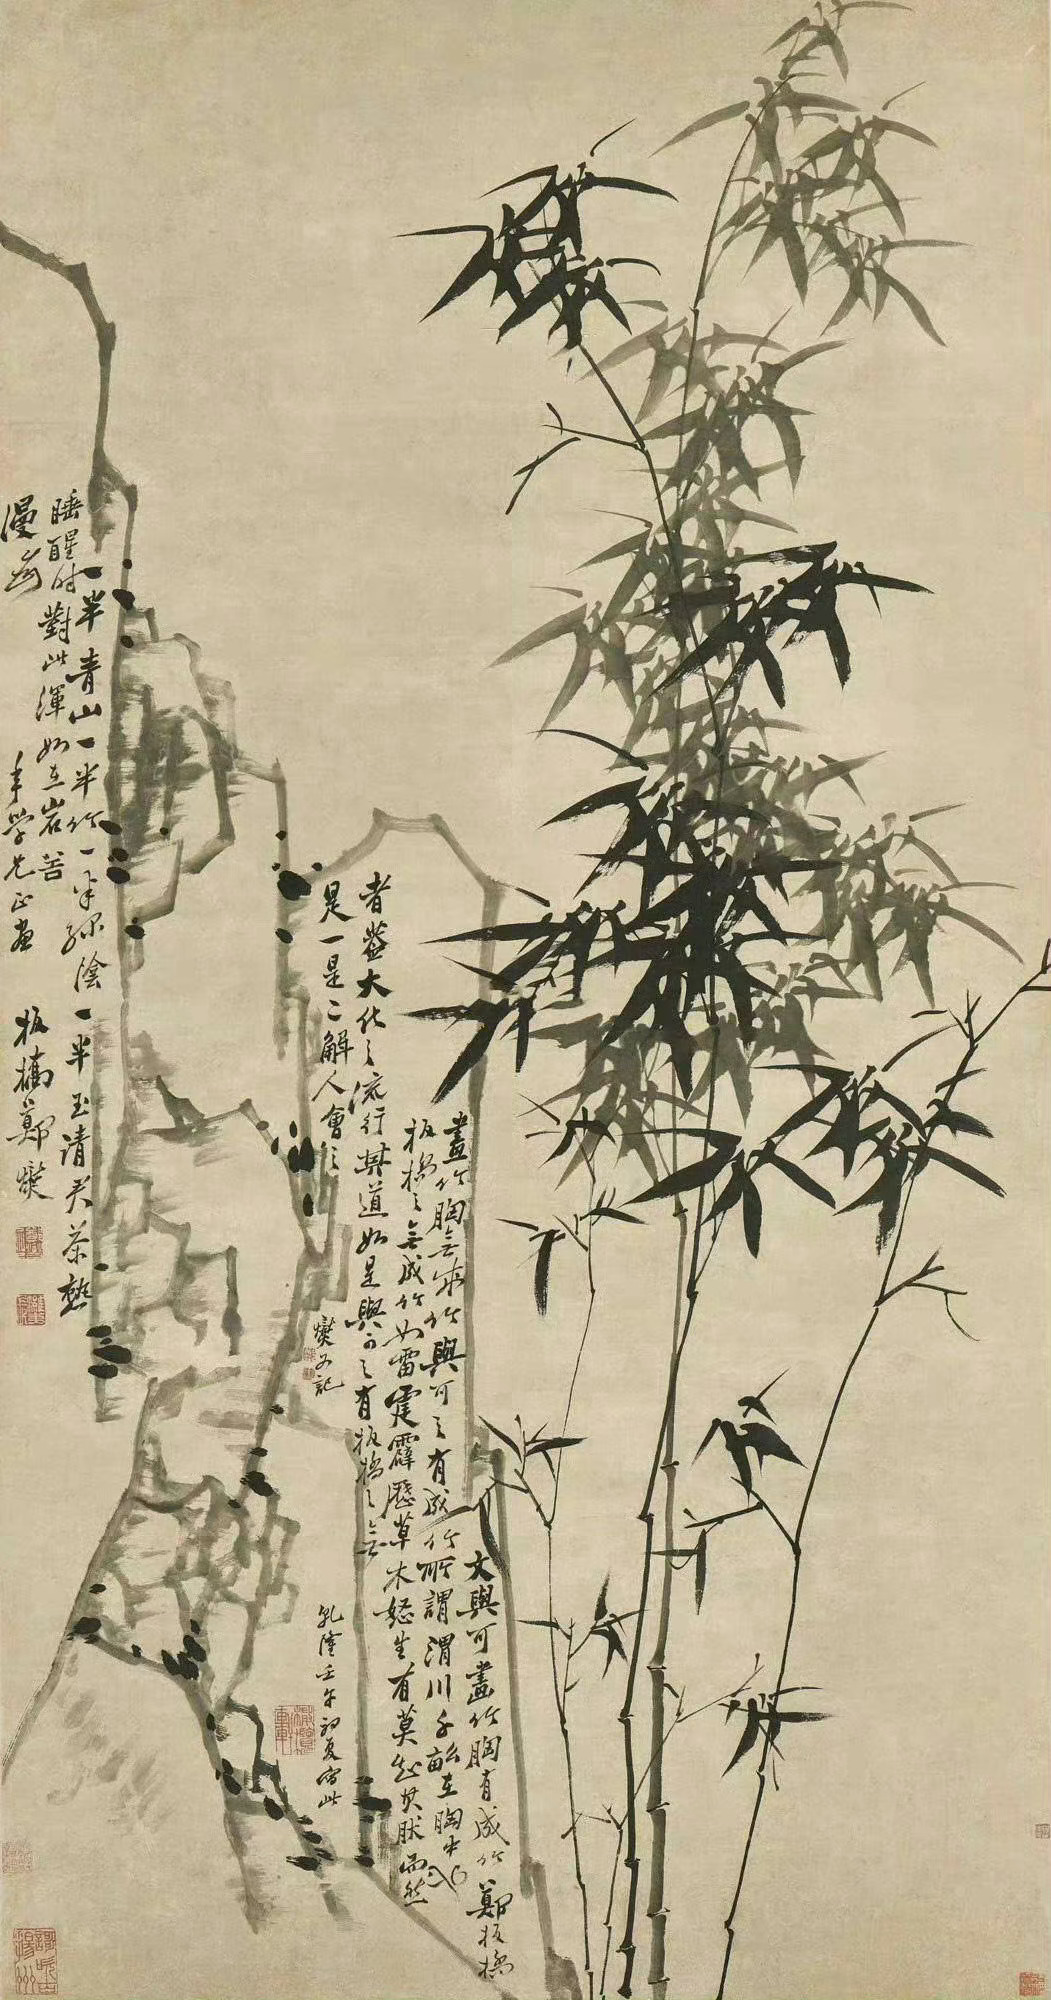 文與可畫竹胸有成竹鄭板橋
畫竹胸無成竹與可之有成竹所謂渭川千畝在胸中也
板橋之無成竹如雷霆霹歷草木怒生有莫知其然而然
者蓋大化之流行其道如是與可之有板橋之無
是一是二解人會之
燮又記
乾隆壬午初夏寫此
一半青山一半竹一半綠陰一半玉請君茶熟
睡醒時對此渾如在岩谷
年學兄正畫
板橋鄭燮
歌吹古揚州